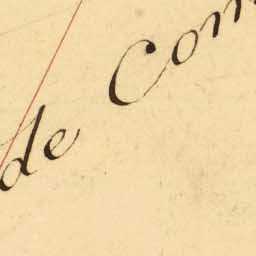 de Com